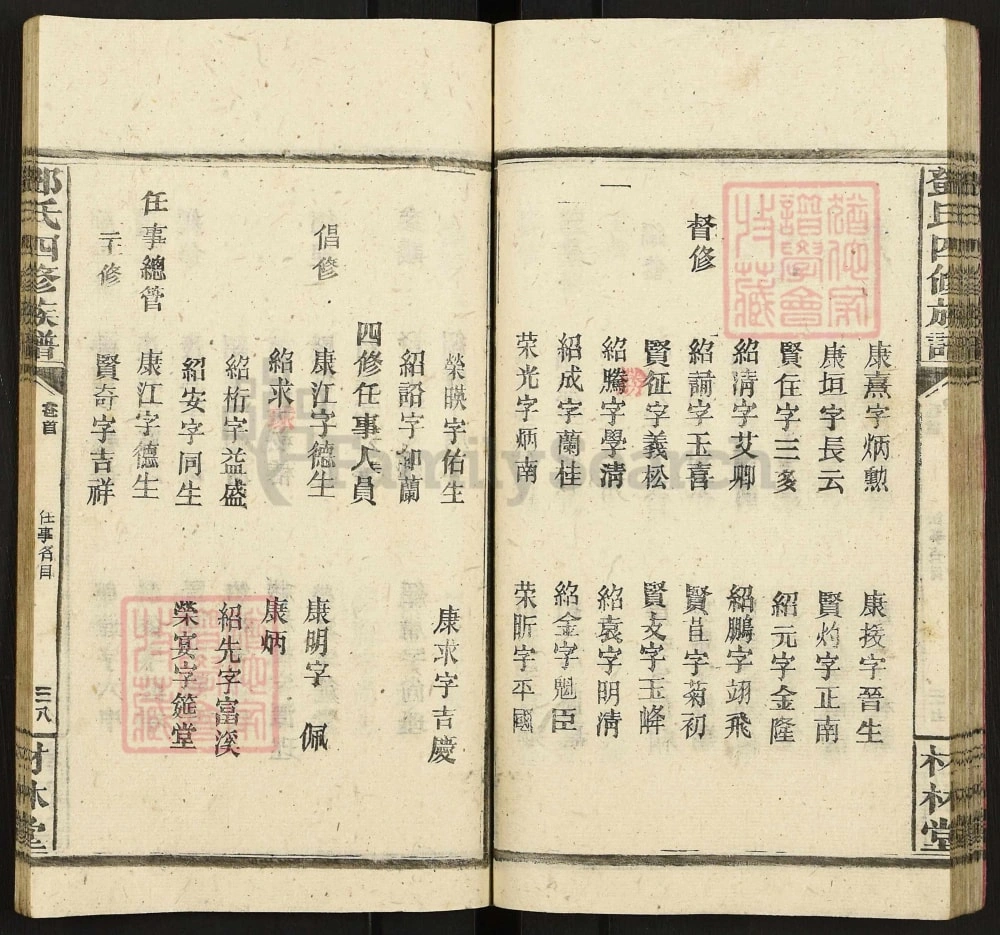 鄧氏四修族譜
材林堂
康熹字炳勲
康授字晉生
康垣字長云
賢灼字正南
賢住字三多
紹元字金隆
紹清字艾卿
紹鵬字翊飛
督修
紹諭字玉喜
賢苴字菊初
賢征字義松
賢文字玉峰
一
紹騰字學淸
紹哀字明淸
紹成字蘭桂
紹金字魁臣
荣光字炳南
荣昕字平國
榮暎字佑生
康求字吉慶
紹詔字 蘭
四修任事人員
倡修
康江字德生
康明字 佩
紹求
康炳
紹桁字益盛
紹先字富溪
紹安字同生
榮宴字筵堂
任事總管
康江字德生
主修
賢奇字吉祥
鄧氏四修族譜
卷首
任事名目
三八
材林堂
猶他家譜學會特藏
猶他家譜學會特藏
FamilySearch